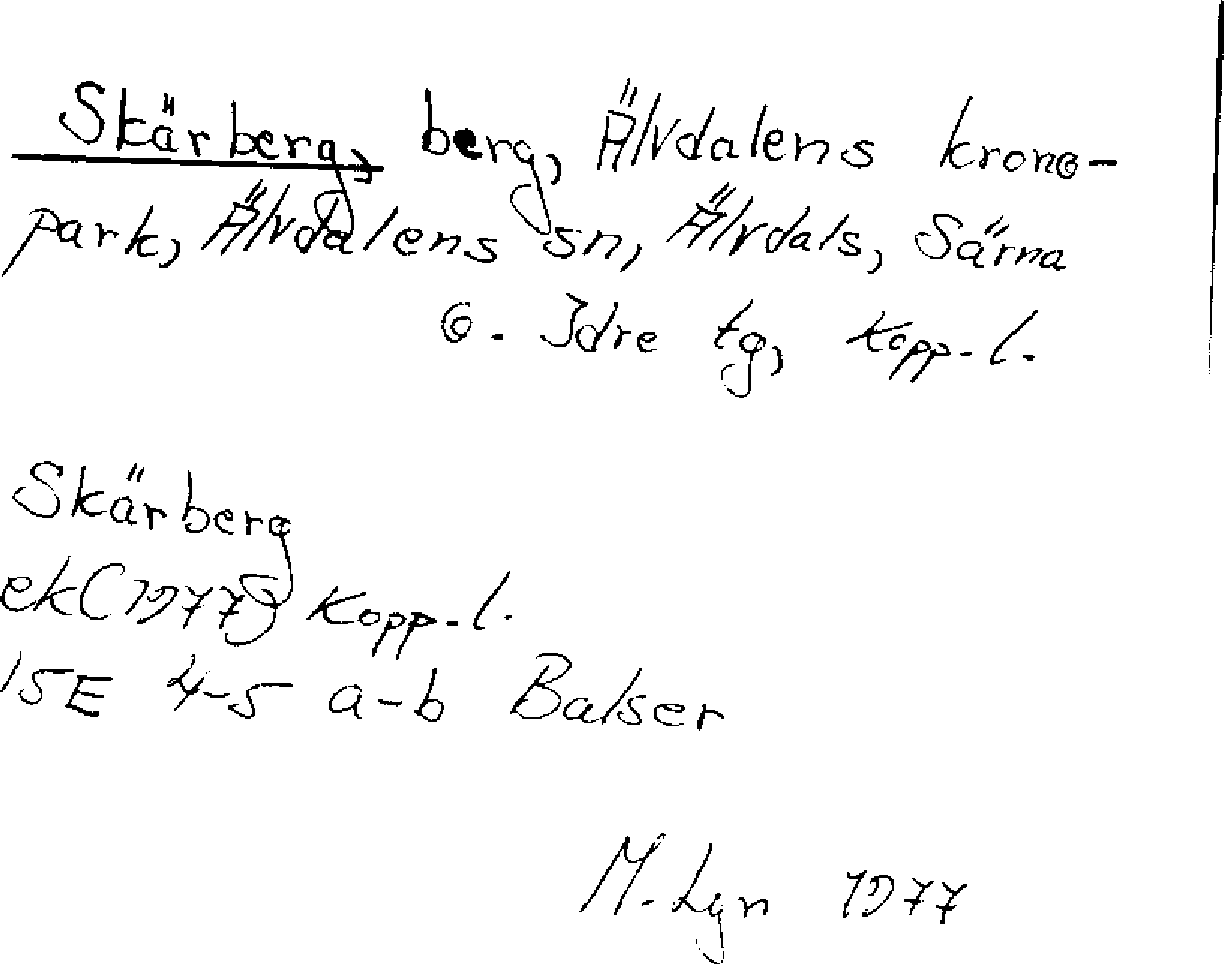 Skärberg, berg, Älvdalens krono-
park, Älvdalens sn, Älvdals, Särna
o. Idre tg, Kopp-l.
Skärberg
ek (1977) Kopp-l.
15E 4-5 a-b Balser
M. Lgn 1977